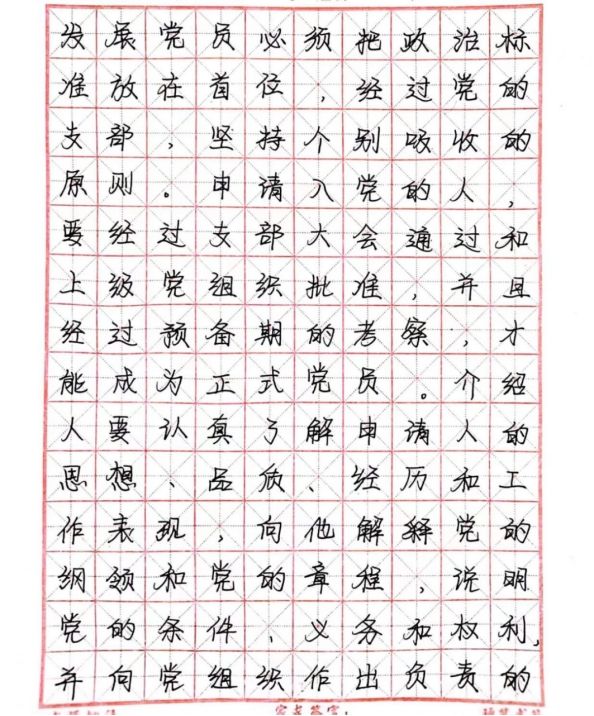 发展党员必须把政治标
准放在首位,经过党的
支部,坚持个别吸收的
原则。申请入党的人,
要经过支部大会通过和
上级党组织批准,并且
经过预备期的考察,才
能成为正式党员。介绍
人要认真了解申请人的
思想、品质、经历和工
作表现,向他解释党的
纲领和党的章程,说明
党的条件、义务和权利,
并向党组织作出负责的